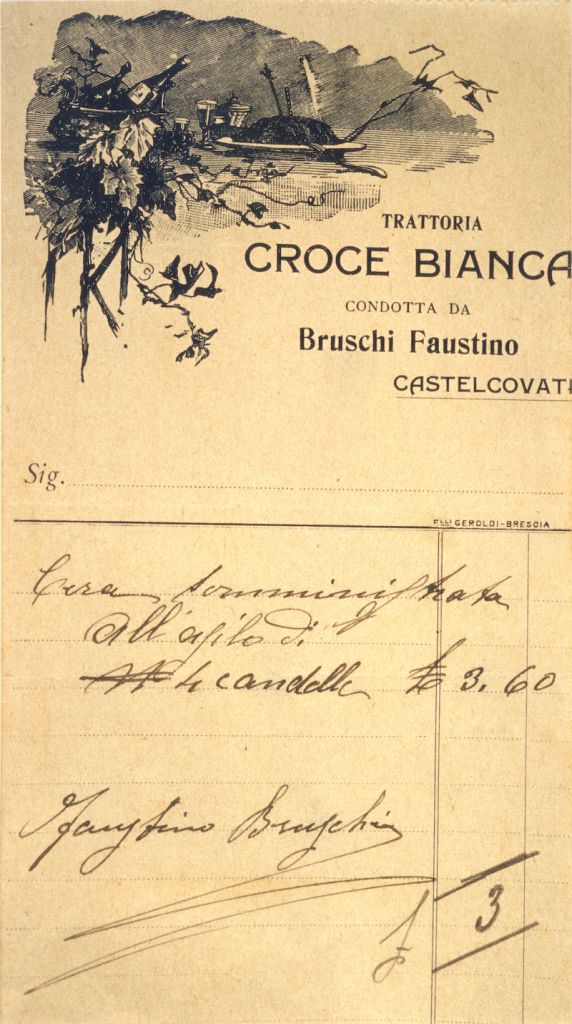 TRATTORIA
CROCE BIANCA
CONDOTTA DA
Bruschi Faustino
CASTELCOVATI
Sig.
F.LLI GEROLDI-BRESCIA
Cera somministrata
all'asilo di
N° 4 candelle £ 3.60
Faustino Bruschi
£ 3